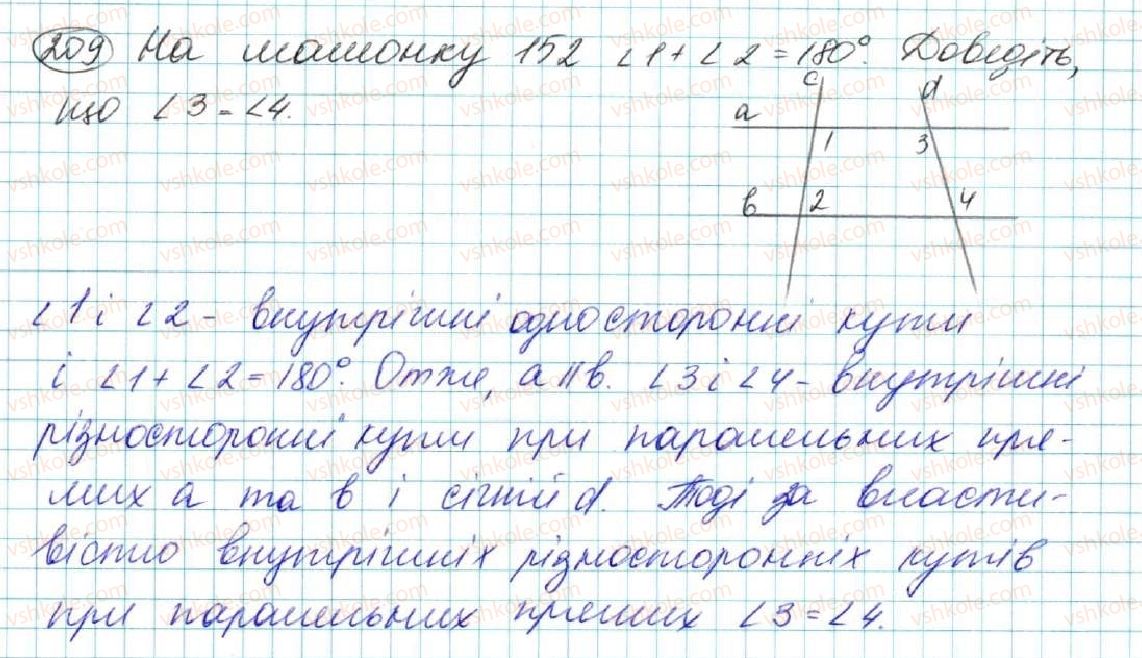 209 На малюнку 152 ∠1+∠2=180°. Доведіть,
що ∠3=∠4.
c d
a
1 3
в 2 4
∠1 і ∠2 - внутрішні односторонні кути
і ∠1+∠2=180°. Отже, a||в. ∠3 і ∠4 - внутрішні
різносторонні кути при паралельних пря-
мих a та в і січній d. Тоді за власти-
вістю внутрішніх різносторонніх кутів
при паралельних прямих ∠3=∠4.
vshkole.com